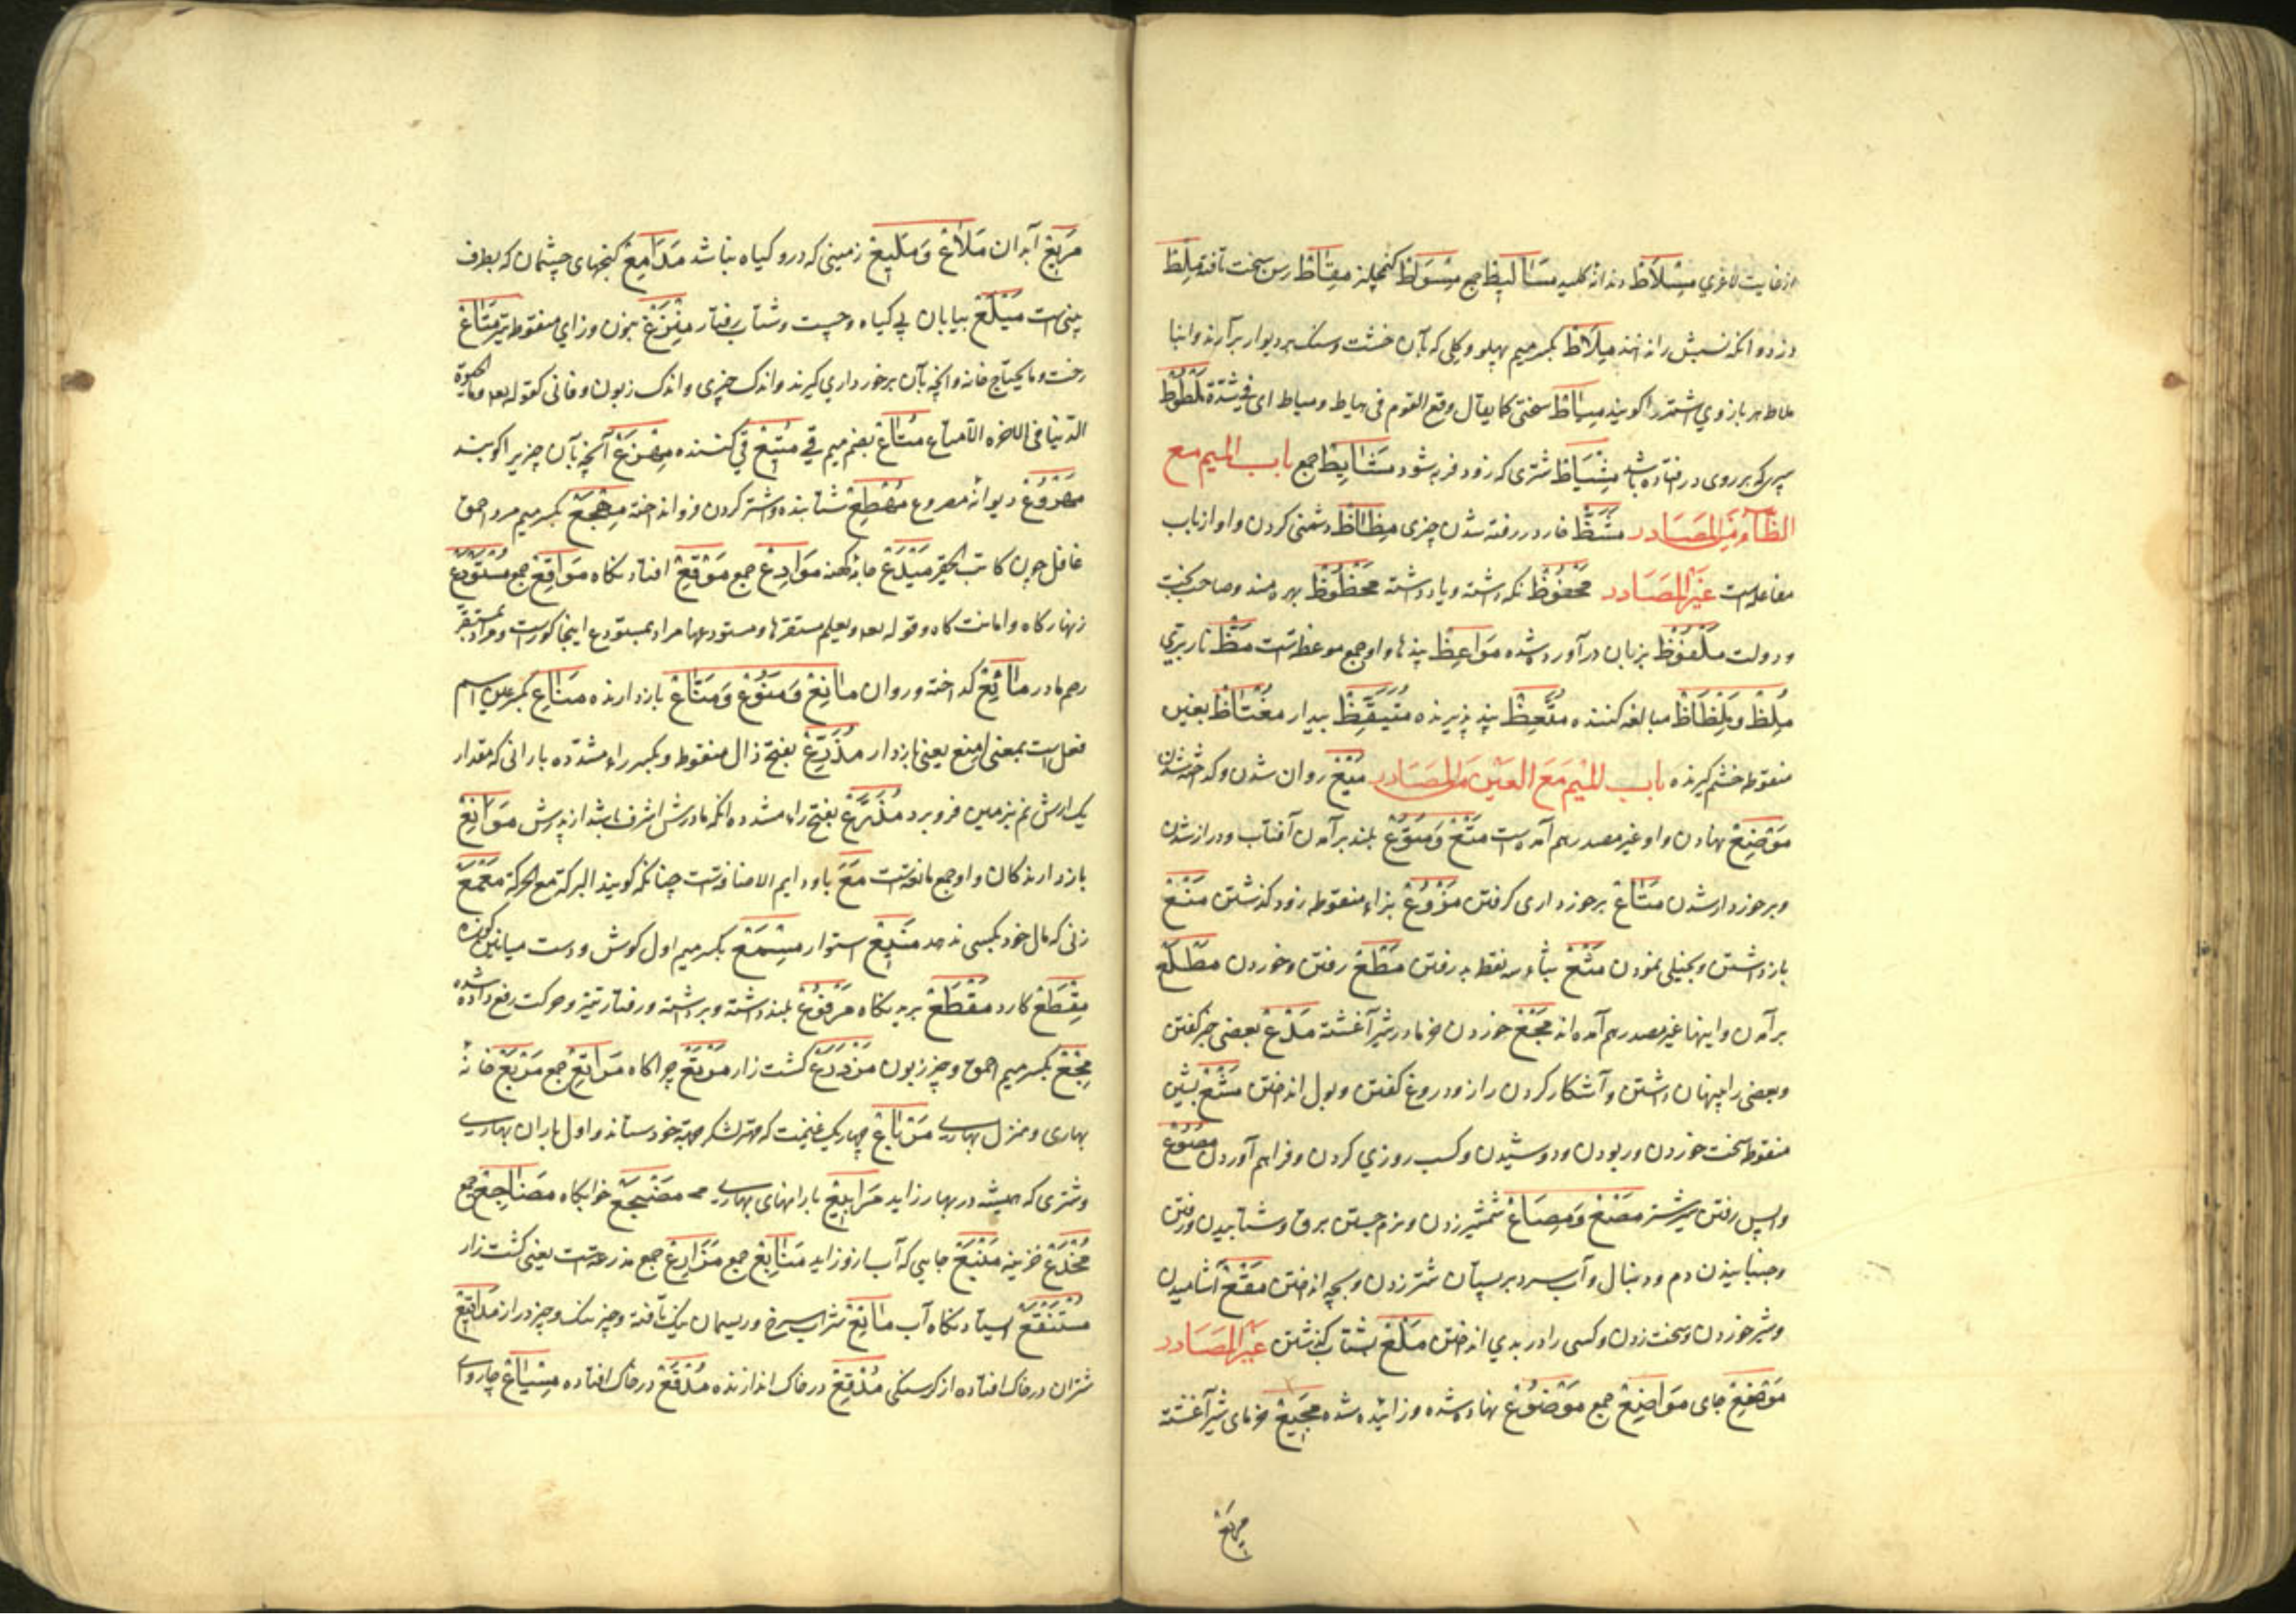 از غایت لاغری مِسْلَاطْ دندانهٔ کلید مَسَالِیطْ جمع مِسْوَطْ کفچلیز مِقَاطْ رسن سخت تافته مِلْطْ
دزد و انکه نسبش را ندانند مِیلَاطْ بکسر میم پهلو و کلی که بآن خشت و سنک بر دیوار برآرند و اینا
ملاط هر بازوی اشتر را کویند مِیَاطْ سختی کما یقال وقع القوم فی هیاط و میاط ای فی شدّة مَلْطُوطْ
سپر که بر روی در افتاده باشد مِشْیَاطْ شتری که زود فربه شود مَشَایِیطْ جمع باب المیم مع
الظّاء مِنَ المَصَادر مَشَظْ خار در رفته شدن چیزی مِظَاظْ دشمنی کردن و او از باب
مفاعله است غَیْر المَصَادر مَحْفُوظْ نکه داشته و یاد داشته مَحْظُوظْ بهره مند و صاحب بخت
و دولت مَلْفُوظْ بزبان در آورده شده مَوَاعِظْ پندها و او جمع موعظه است مَظْ نار بری
مُلِظْ وَ مِلْظَاظْ مبالغه کننده مُتَّعِظْ پند پذیرنده مُتَیَقِّظْ بیدار مُغْتَاظْ بغین
منقوطه خشم کیرنده باب المیم مَعَ العَیْن مِنَ المَصَادر مَیْعْ روان شدن و کداخته شدن
مَوْضِعْ نهادن و او غیر مصدر هم آمده است مَتْعْ وَ مُتُوعْ بلند برآمدن آفتاب و دراز شدن
و برخوردار شدن مَتَاعْ برخورداری کرفتن مَزْوعْ بزاء منقوطه زود کذشتن مَنْعْ
بازداشتن و بخیلی نمودن مَثْعْ بثاء سه نقطه بد رفتن مَطْعْ رفتن و خوردن مَطْلَعْ
برآمدن و اینها غیر مصدر هم آمده اند مَجْعْ خوردن خرما در شیر آغشته مَذْعْ بعضی خبر کفتن
و بعضی را پنهان داشتن و آشکار کردن راز و دروغ کفتن و بول انداختن مَشْعْ بشین
منقوطه سخت خوردن و ربودن و دوشیدن و کسب روزی کردن و فراهم آوردن مُصُوعْ
واپس رفتن شیر شتر مَصْعْ وَ مِصَاعْ شمشیر زدن و نرم جستن برق و شتابیدن و رفتن
و جنبانیدن دم و دنبال و آب سرد بر پستان شتر زدن و بچه انداختن مَقْعْ آشامیدن
و شیر خوردن و سخت زدن و کسی را در بدی انداختن مَلْعْ بشتاب کذشتن غَیْر المَصَادر
مَوْضِعْ جای مَوَاضِعْ جمع مَوْضُوعْ نهاده شده و زائیده شده مَجِیعْ خرمای شیر آغشته
مَرَبَعْ
مَرَبَعْ آبدان مَلَاعْ وَ مَلِیعْ زمینی که درو کیاه نباشد مَدَامِعْ کنجهای چشمان که بطرف
بینی است مَیْلَعْ بیابان بی کیاه و چست و شتاب رفتار مِنْزَعْ بنون و زای منقوطه تیر مَتَاعْ
رخت و ما یحتاج خانه و آنچه بآن برخورداری کیرند و اندک چیزی و اندک زبون و فانی کقوله تعه وما الحیوة
الدّنیا فی الاخره الّا متاع مُتَاعْ بضم میم قی مُتِیعْ قی کننده مِفْزَعْ آنچه بآن چیزیرا کوبند
مَصْرُوعْ دیوانه مصروع مُهْطِعْ شتابنده و اشتر کردن فرو انداخته مِهْجَعْ بکسر میم مرد احمق
غافل چون کاتب الحقیر مَیْدَعْ جامهٔ کهنه مَوَادِعْ جمع مَوْقِعْ افتادنکاه مَوَاقِعْ جمع مُسْتَوْدَعْ
زنهار کاه و امانت کاه و قوله تعه و یعلم مستقرها و مستودعها مراد بمستودع اینجا کورست و مراد بمستقر
رحم مادر مَائِعْ کداخته و روان مَانِعْ وَ مَنُوعْ وَ مَنَّاعْ بازدارنده مَنَاعِ بکسر عین اسم
فعل است بمعنی امنع یعنی بازدار مُذَرِّعْ بفتح ذال منقوطه و بکسر راء مشدده بارانی که مقدار
یک ارش نم بزمین فرو برد مُذَرَّعْ بفتح راء مشدده انکه مادرش اشرف باشد از پدرش مَوَانِعْ
بازدارندکان و او جمع مانعه است مَعَ با و دایم الاضافه است چنانکه کویند البرکة مع الحرکة مَعْمَعْ
زنی که مال خود بکسی ندهد مَنِیعْ استوار مِسْمَعْ بکسر میم اول کوش و دست میانین کوزه
مِقْطَعْ کارد مَقْطَعْ بریدنکاه مَرْفُوعْ بلند داشته و برداشته و رفتار تیز و حرکت رفع داده شده
مِجْعْ بکسر میم احمق و چیز زبون مَزْدَرَعْ کشت زار مَرْتَعْ چراکاه مَرَاتِعْ جمع مَرْبَعْ خانهٔ
بهاری و منزل بهاری مِرْبَاعْ چهار یک غنیمت که مهتر لشکر بجهة خود ستاند و اول باران بهاری
و شتری که همیشه در بهار زاید مَرَابِیعْ بارانهای بهاری مَضْجَعْ خوابکاه مَضَاجِعْ جمع
مُخْدَعْ خزینه مَنْبَعْ جایی که آب ازو زاید مَنَابِعْ جمع مَزَارِعْ جمع مزرعه است یعنی کشت زار
مُسْتَنْقَعْ ایستادنکاه آب مَاتِعْ شراب سرخ و ریسمان نیک تافته و چیز نیک و چیز دراز مَدَاقِیعْ
شتران در خاک افتاده از کرسنکی مُدْقِعْ در خاک اندازنده مُدْقَعْ در خاک افتاده مِسْیَاعْ چاروای